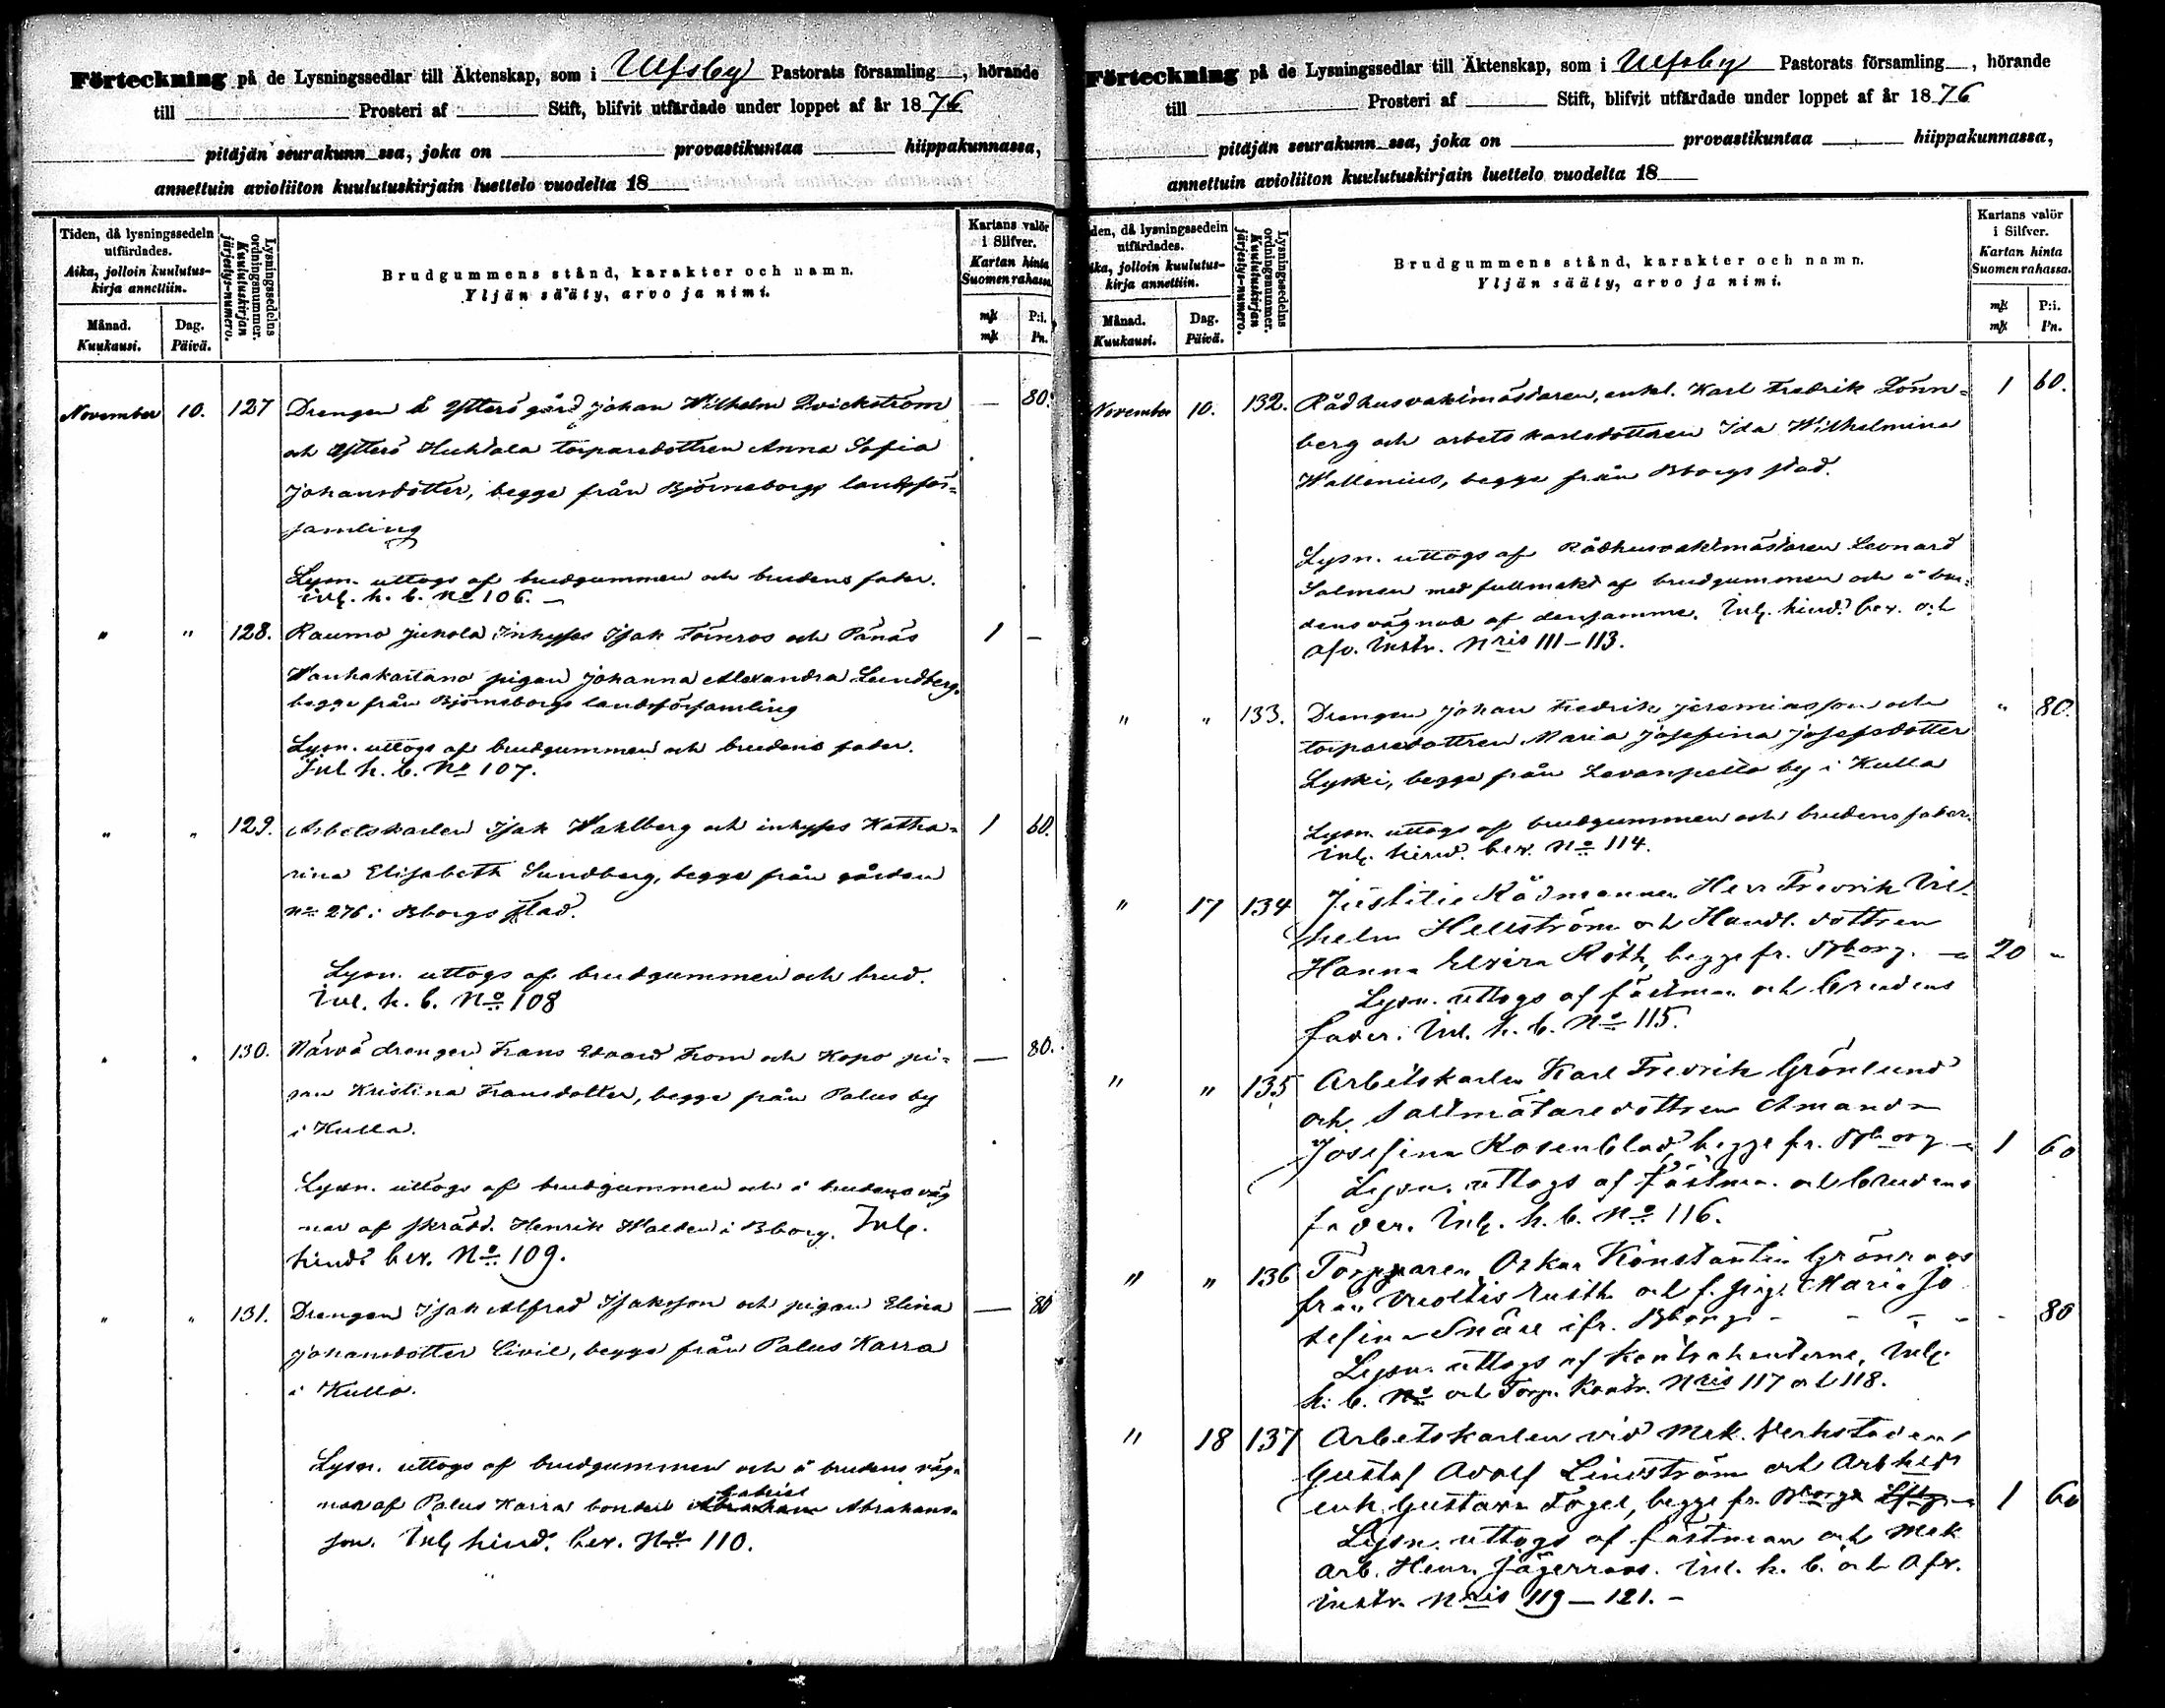 Förteckning på de Lysningssedlar till Äktenskap, som i Ulfsby Pastorats församling , hörande
till Prosteri af Stift, blifvit utfärdade under loppet af år 1876
pitäjän seurakunn ssa, joka on provastikuntaa hiippakunnassa,
annettuin avioliiton kuulutuskirjain luettelo vuodelta 18
Tiden, då lysningssedeln utfärdades.
Aika, jolloin kuulutus-
kirja annettiin.
Månad.
Kuukausi.
Dag.
Päivä.
Lysningssedelns ordningsnummer.
Kuulutuskirjan järjestys-numero.
Brudgummens stånd, karakter och namn.
Yljän sääty, arvo ja nimi.
Kartans valör
i Silfver.
Kartan hinta
Suomen rahassa.
mk P:i.
mk Pn.
November 10. 127 Drengen å Ytterö gård Johan Wilhelm Qvickström — 80.
och Ytterö Huhtala torparedottren Anna Sofia
Johansdotter, begge från Björneborgs landsför=
samling
Lysn. uttogs af brudgummen och brudens fader.
inl. h. b. No 106. —
" " 128. Raumo Juhola Inhyses Isak Törnros och Pänäs 1 —
Wanhakartano pigan Johanna Alexandra Lundberg,
begge från Björneborgs landsförsamling
Lysn. uttogs af brudgummen och brudens fader.
Inl. h. b. No 107.
" " 129. Arbetskarlen Isak Wahlberg och inhyses Katha= 1 60.
rina Elisabeth Sundberg, begge från gården
No 276 i Bborgs stad.
Lysn. uttogs af brudgummen och brud.
Inl. h. b. No 108
" " 130. Närvä drengen Frans Edvard From och Kopo pi= — 80.
gan Kristina Fransdotter, begge från Palus by
i Kulla.
Lysn. uttogs af brudgummen och å brudens väg
nar af skrädd. Henrik Walden i Bborg. Inl.
hind. bev. No 109.
" " 131. Drengen Isak Alfred Isaksson och pigan Elina — 80
Johansdotter Civil, begge från Palus Harra
i Kulla.
Lysn. uttogs af brudgummen och å brudens väg=
nar af Palus Harra bonden Gabriel Abrahams=
son. Inl. hind. bev. No 110.
Förteckning på de Lysningssedlar till Äktenskap, som i Ulfsby Pastorats församling , hörande
till Prosteri af Stift, blifvit utfärdade under loppet af år 1876
pitäjän seurakunn ssa, joka on provastikuntaa hiippakunnassa,
annettuin avioliiton kuulutuskirjain luettelo vuodelta 18
den, då lysningssedeln
utfärdades.
ika, jolloin kuulutus-
kirja annettiin.
Månad.
Kuukausi.
Dag.
Päivä.
Lysningssedelns ordningsnummer.
Kuulutuskirjan järjestys-numero.
Brudgummens stånd, karakter och namn.
Yljän sääty, arvo ja nimi.
Kartans valör
i Silfver.
Kartan hinta
Suomen rahassa.
mk P:i.
mk Pn.
November 10. 132. Rådhusvaktmästaren, enkl. Karl Fredrik Lönn= 1 60.
berg och arbetskarlsdottren Ida Wilhelmina
Wallenius, begge från Bborgs stad.
Lysn. uttogs af Rådhusvaktmästaren Leonard
Salmen med fullmakt af brudgummen och å bru=
dens vägnar af densamme. Inl. hind. bev. och
afv. instr. Nris 111–113.
" " 133. Drengen Johan Fredrik Jeremiasson och " 80.
torparedottren Maria Josefina Josefsdotter
Lyski, begge från Lavanpelto by i Kulla
Lysn. uttogs af brudgummen och brudens fader.
inl. hind. bev. No 114.
" 17 134 Justitie Rådmannen Herr Fredrik Vil-
helm Hellström och Handl. dottren
Hanna Elvira Roth, begge fr. Bborg. — 20 "
Lysn. uttogs af fästman och brudens
fader. Inl. h. b. No 115.
" " 135 Arbetskarlen Karl Fredrik Grönlund
och Saltmätaredottren Amanda
Josefina Rosenblad, begge fr. Bborg — 1 60
Lysn. uttogs af fästman och brudens
fader. Inl. h. b. No 116.
" " 136 Torpparen Oskar Konstantin Grönroos
från och f. pig. Maria Jo
sefina Snäll ifr. Bborg - - - - 80
Lysn. uttogs af Kontrahenterne, Inl.
h. b. No och Torp. Kontr. Nris 117 och 118.
" 18 137 Arbetskarlen vid Mek. Verkstaden
Gustaf Adolf Lindström och Arb
enk. Gustava Fogel, begge fr. Bborgs 1 60
Lysn. uttogs af fästman och Mek
arb. Henr. Jägerroos. Inl. h. b. och Afv.
instr. Nris 119–121. –